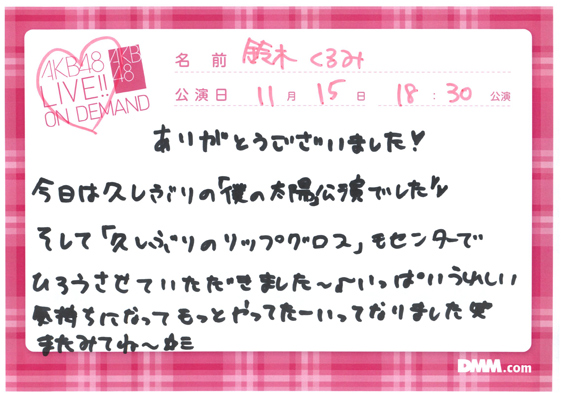 AKB48
LIVE!!
ON DEMAND
AKB
48
名前 鈴木くるみ
公演日 11月15日 18:30 公演
ありがとうございました!
今日は久しぶりの「僕の太陽」公演でした
そして「久しぶりのリップグロス」もセンターで
ひろうさせていただきました〜♪いっぱいうれしい
気持ちになってもっとやってたーいってなりました
またみてね〜☆ミ
DMM.com